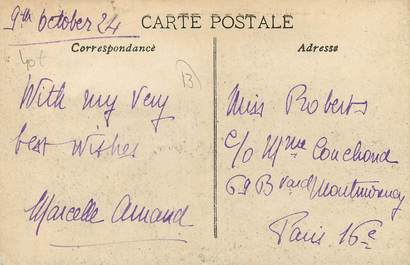 9th October 24
CARTE POSTALE
Correspondance
Adresse
13
With my very
best wishes
Marcelle Amand
Miss Roberts
c/o Mme Couchond
69 Bvard Montmorency
Paris 16e